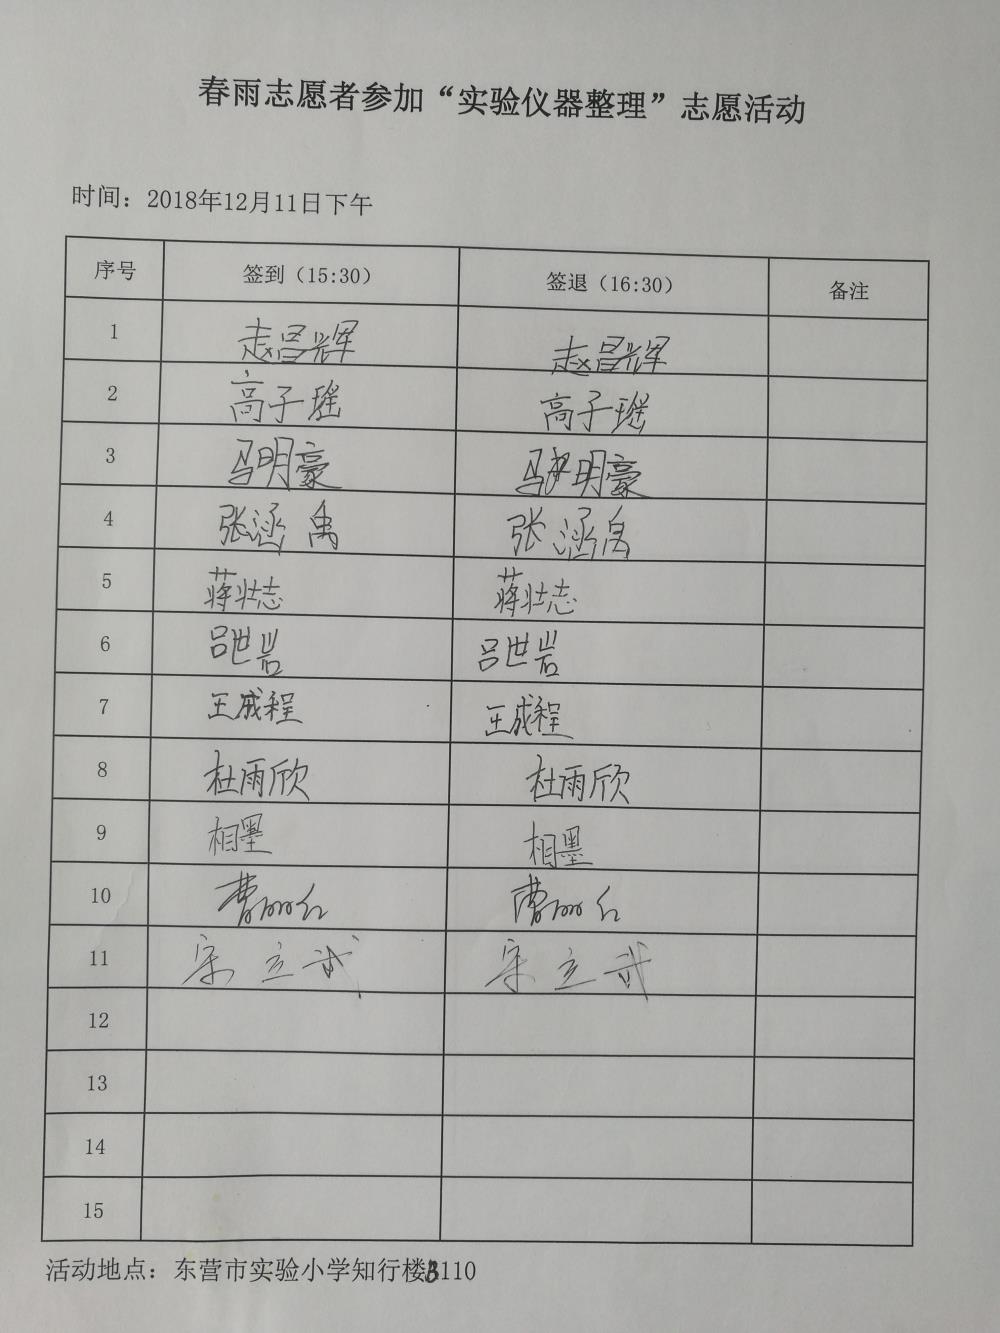 春雨志愿者参加“实验仪器整理”志愿活动
时间：2018年12月11日下午
序号 签到（15:30） 签退（16:30） 备注
1 赵昌辉 赵昌辉
2 高子瑶 高子瑶
3 马明豪 马明豪
4 张涵禹 张涵禹
5 蒋壮志 蒋壮志
6 吕世岩 吕世岩
7 王成程 王成程
8 杜雨欣 杜雨欣
9 相墨 相墨
10 曹丽红 曹丽红
11 宋立武 宋立武
12
13
14
15
活动地点：东营市实验小学知行楼B110